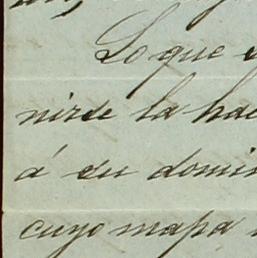 Lo que
nirse la hac
á su domin
cuyo mapa